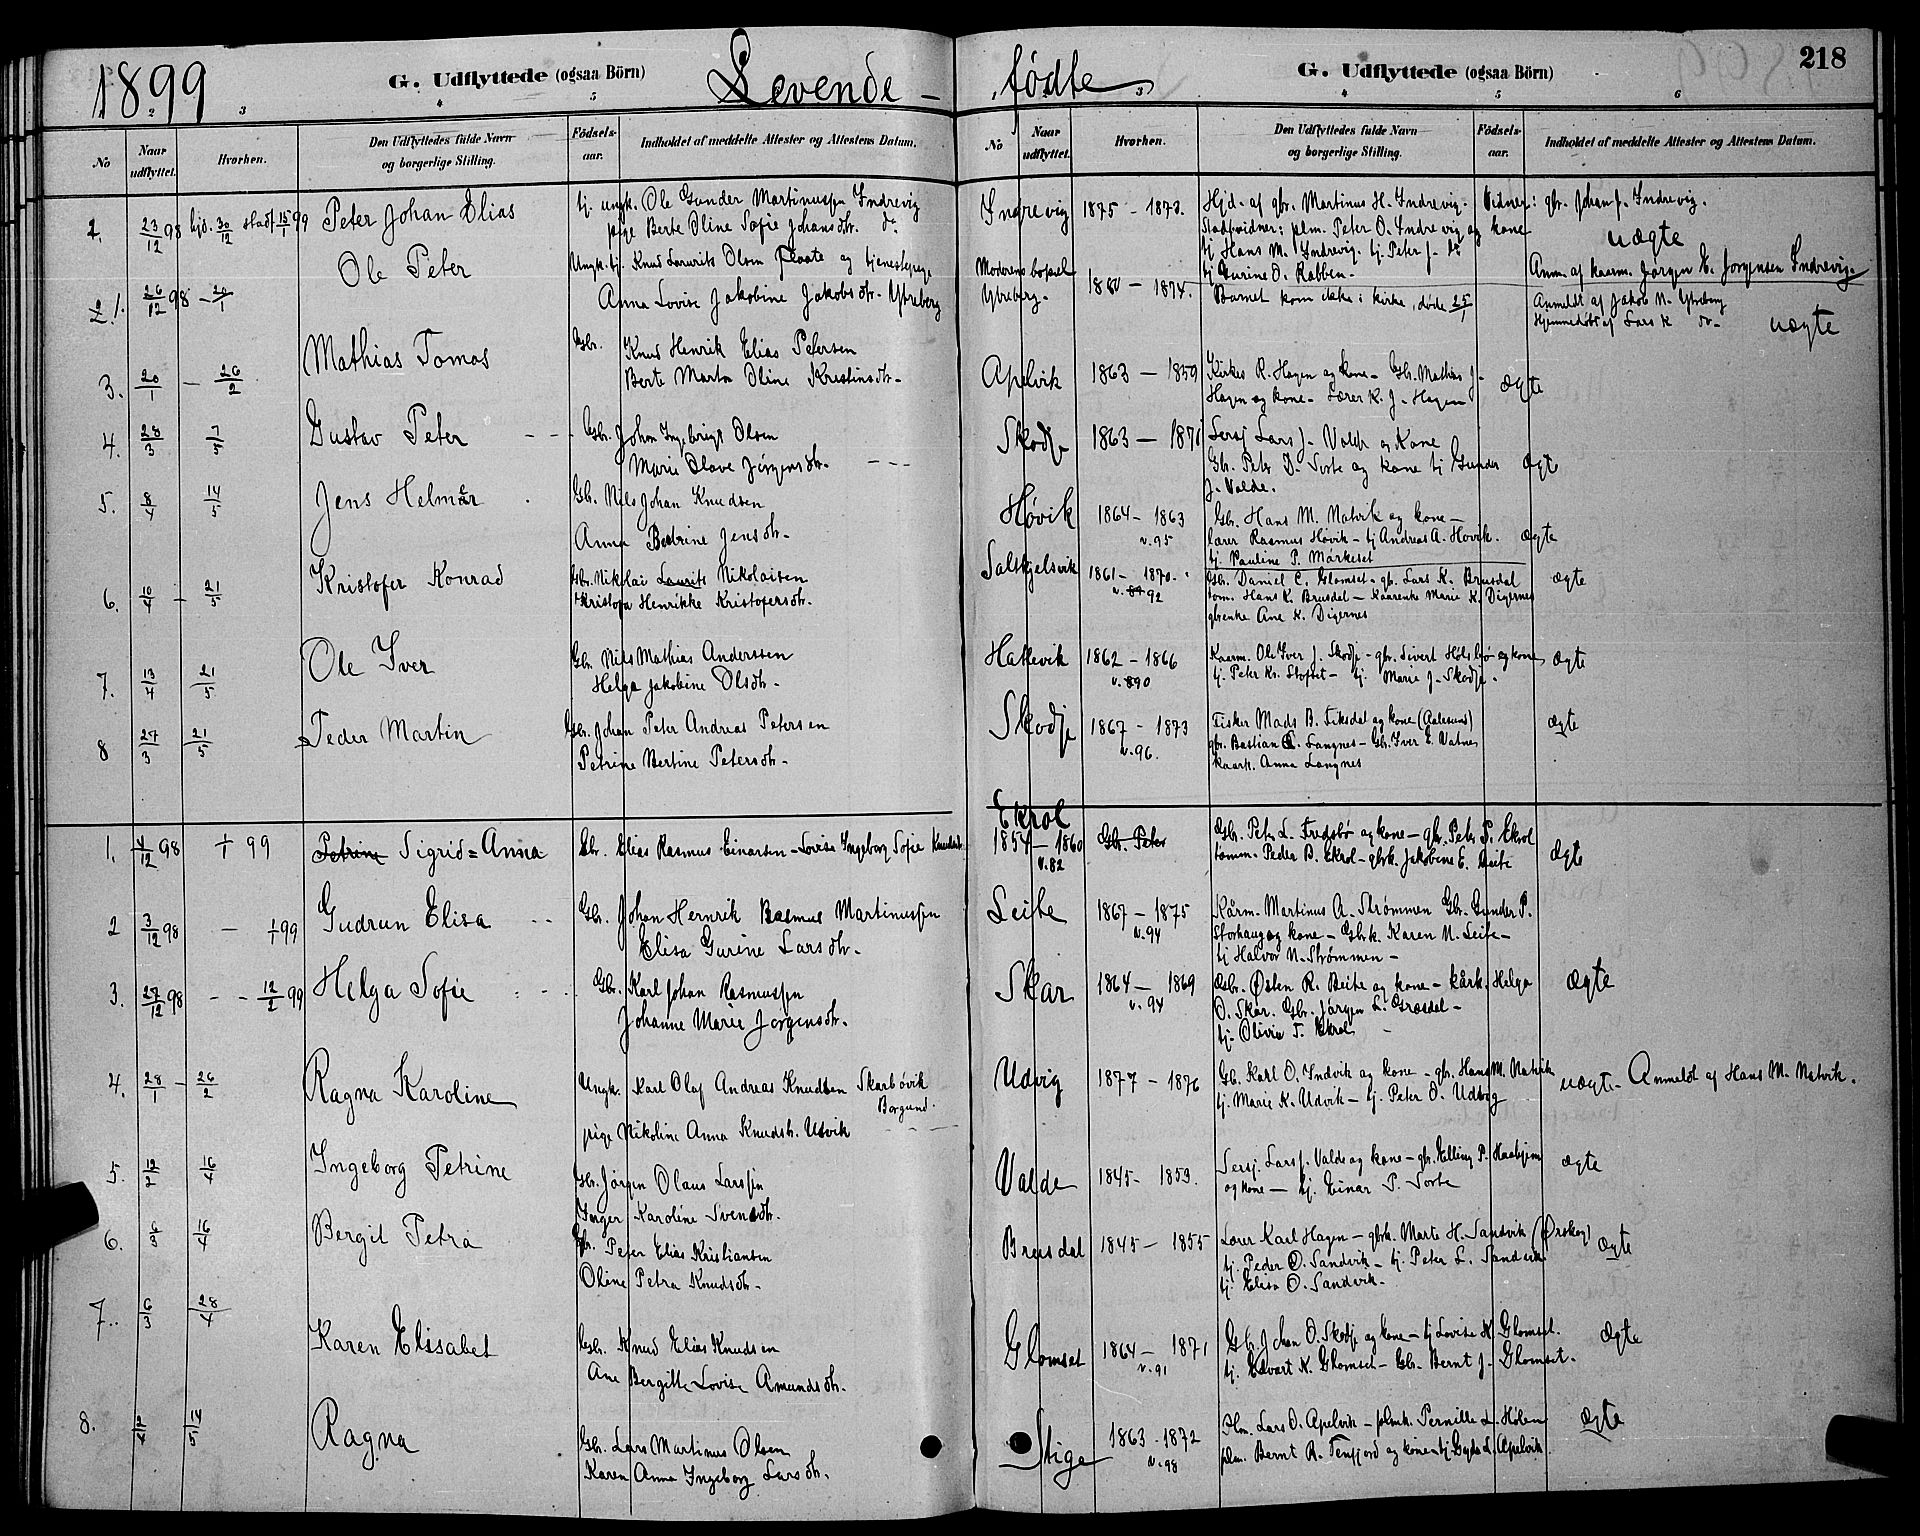 1899 G. Udflyttede (ogsaa Börn) Levende - fødte G. Udflyttede (ogsaa Börn) 218
2 3 4 5 3 4 5 6
No Naar udflyttet. Hvorhen. Den Udflyttedes fulde Navn og borgerlige Stilling. Födsels-aar. Indholdet af meddelte Attester og Attestens Datum.
No Naar udflyttet. Hvorhen. Den Udflyttedes fulde Navn og borgerlige Stilling. Födsels-aar. Indholdet af meddelte Attester og Attestens Datum.
1. 23/12 98 hjd. 30/12 stadf. 15/1 99 Peter Johan Elias tj. ungk. Ole Gunder Martinussen Indrevig
pige Berte Oline Sofie Johansdtr. do
Indrevig 1875 - 1873. Hjd. af gbr. Martinus H. Indrevig. Vidner: gbr. Johan J. Indrevig.
Stadf. vidner: plm. Peter O. Indrevig og kone
tj Hans M. Indrevig. tj. Peter J. do
tj Gurine O. Rabben.
uægte
Anm. af kaarm. Jørgen E. Jørgensen Indrevig.
2. 26/12 98 - Ole Peter Ungk. tj. Knud Laurits Olsen Flaate og tjenestepige
Anna Lovise Jakobine Jakobsdtr. Ytreberg
Moderens bopæl Ytreberg. 1880 - 1874. Barnet kom ikke i kirke, døde 25/1
Anmeldt af Jakob N. Ytreberg
Hjemmedøbt af Lars K do uægte
3. 20/1 - 26/2 Mathias Tomas Gbr. Knud Henrik Elias Petersen
Berte Marta Oline Kristinsdtr.
Apelvik 1863 - 1859 Kirkes. R. Hagen og kone - Gbr. Mathias J.
Hagen og kone - Lærer K. J. Hagen ægte
4. 28/3 7/5 Gustav Peter Gbr. Johan Ingebrigt Olsen
Marie Olave Jørgensdtr.
Skodje 1863 - 1871 Sersj Lars J. Valde og Kone
Gbr. Peter D. Sorte og kone tj Gunder
J. Valde. ægte
5. 8/4 14/5 Jens Helmer Gbr. Nils Johan Knudsen
Anna Bedrine Jensdtr.
Høvik 1864 - 1863 v. 95 Gbr. Hans M. Natvik og kone -
lærer Rasmus Høvik - tj Andreas A. Hovik.
tj. Pauline P. Mørkeset ægte
6. 10/4 - 21/5 Kristofer Konrad Gbr. Nikolai Laurits Nikolaisen
Kristofa Henrikke Kristofersdtr.
Salthjelsvik 1861 - 1870. v. 89 92 Gbr. Daniel C. Glomset - gbr. Lars K. Brusdal
tom. Hans K. Brusdal - Kaarenke Marie K. Digernes
gbrenke Ane K. Digernes ægte
7. 13/4 21/5 Ole Iver Gbr. Nils Mathias Anderssen
Helga Jakobine Olsdtr.
Hatlevik 1862 - 1866 v. 890 Kaarm. Ole Iver J. Skodje - gbr. Sivert Holsbø og kone
tj. Peter Kr. Stoffet - tj. Marie J. Skodje. ægte
8 27/3 21/5 Peder Martin Gbr. Johan Peter Andreas Petersen
Petrine Bertine Petersdtr.
Skodje 1867 - 1873 v. 96. Fisker Mads B. Fiksdal og kone (Aalesund)
gbr. Bastian L. Langnes - Gbr. Iver E. Vatnes
kaark. Anna Langnes ægte
1. 4/12 98 99 Petrine Sigrid = Anna Gbr. Elias Rasmus Einarsen - Lovise Ingeborg Sofie Knudsdtr.
Ekrol 1854 - 1860 v. 82 Gbr. Peter Gbr. Peter L. Fredsbø og kone - gbr. Peter P. Ekrol
tømm. Peder B. Ekrol - gbrk. Jakobine E. Beite ægte
2 3/12 98 - 99 Gudrun Elisa Gbr. Johan Henrik Rasmus Martinussen
Elisa Gurine Larsdtr.
Leite 1867 - 1875 v. 94 Kårm. Martinus A. Strømmen Gbr. Gunder P.
Storhaug og kone - Gbrk. Karen N. Leite -
tj Halvor N. Strømmen -
3. 27/12 98 - 12/2 99 Helga Sofie Gbr. Karl Johan Rasmussen
Johanne Marie Jørgensdtr.
Skar 1864 - 1869 v. 94 Gbr. Østen R. Beite og kone - kårk. Helga
O. Skar. Gbr. Jørgen L. Græsdal -
tj. Olivia T. Ekrol ægte
4. 28/1 - 26/2 Ragna Karoline Ungk. Karl Olaf Andreas Knudsen Skarbøvik
Borgund.
pige Nikoline Anna Knudsdtr. Udvik
Udvig 1877 - 1876 Gb. Karl O. Indvik og kone - gbr. Hans M. Natvik
tj. Marie K. Udvik - tj. Peter O. Udvig uægte - Anmeldt af Hans M. Natvik.
5. 12/2 16/4 Ingeborg Petrine Gbr. Jørgen Olaus Larssen
Inger Karoline Svensdtr.
Valde 1845 - 1853. Sersj. Lars J. Valde og kone - gbr. Elling P. Haahjem
og kone - tj. Einar P. Sorte ægte
6. 16/4 Bergit Petra Gbr. Peter Elias Kristiansen
Oline Petra Knudsdtr.
Breisdal 1845 - 1855 Lærer Karl Hagen - gbrk. Marte H. Sandvik (Ørskog)
tj. Peder O. Sandvik - tj. Peter L. Sandvik
tj. Elisa O. Sandvik. ægte
7. 6/3 28/4 Karen Elisabet Gbr. Knud Elias Knudsen
Ane Bergitte Lovise Amundsdtr.
Glomset 1864 - 1871 v. 91 Gbr. Johan O. Skodje og kone - tj Lovise K. Glomset.
tj. Edvart K. Glomset - Gbr. Bernt J. Glomset. ægte
8. 2/4 14/5 Ragna Gbr. Lars Martinus Olsen
Karen Anna Ingeborg Larsdtr.
Stige 1863 - 1872 v. 98 Plm. Lars O. Apelvik - plmk. Pernille L. Holen
plm. Bernt R. Tenfjord og kone - tj. Gyda L. Apelvik ægte